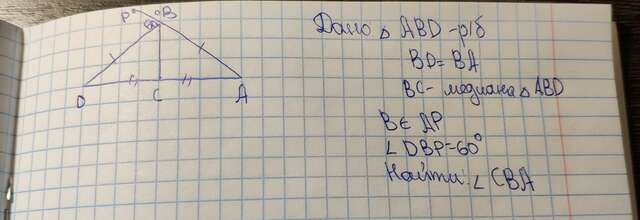 P B
60
D C A
Дано △ ABD - р/б
BD = BA
BC - медиана △ ABD
B ∈ AP
∠DBP = 60°
Найти: ∠ CBA